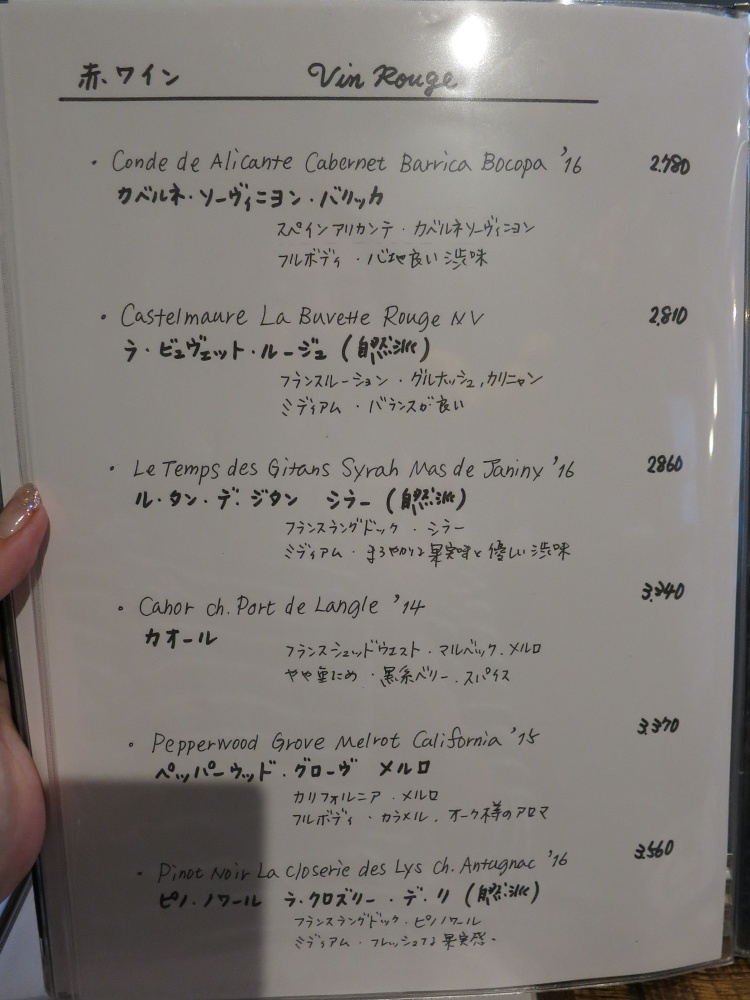 赤ワイン Vin Rouge
・Conde de Alicante Cabernet Barrica Bocopa '16 2.780
カベルネ・ソーヴィニヨン・バリッカ
スペインアリカンテ・カベルネソーヴィニヨン
フルボディ・心地良い渋味
・Castelmaure La Buvette Rouge NV 2.810
ラ・ビュヴェット・ルージュ(自然派)
フランスルーション・グルナッシュ,カリニャン
ミディアム・バランスが良い
・Le Temps des Gitans Syrah Mas de Janiny '16 2860
ル・タン・デ・ジタン シラー(自然派)
フランスラングドック・シラー
ミディアム・まろやかな果実味と優しい渋味
・Cahor ch. Port de Langle '14 3.340
カオール
フランスシュッドウエスト・マルベック.メルロ
やや重ため・黒系ベリー.スパイス
・Pepperwood Grove Melrot California '15 3.370
ペッパーウッド・グローヴ メルロ
カリフォルニア・メルロ
フルボディ・カラメル.オーク樽のアロマ
・Pinot Noir La closerie des Lys ch. Antugnac '16 3.560
ピノ・ノワール ラ・クロズリー・デ・リ(自然派)
フランスラングドック・ピノノワール
ミディアム・フレッシュな果実感・